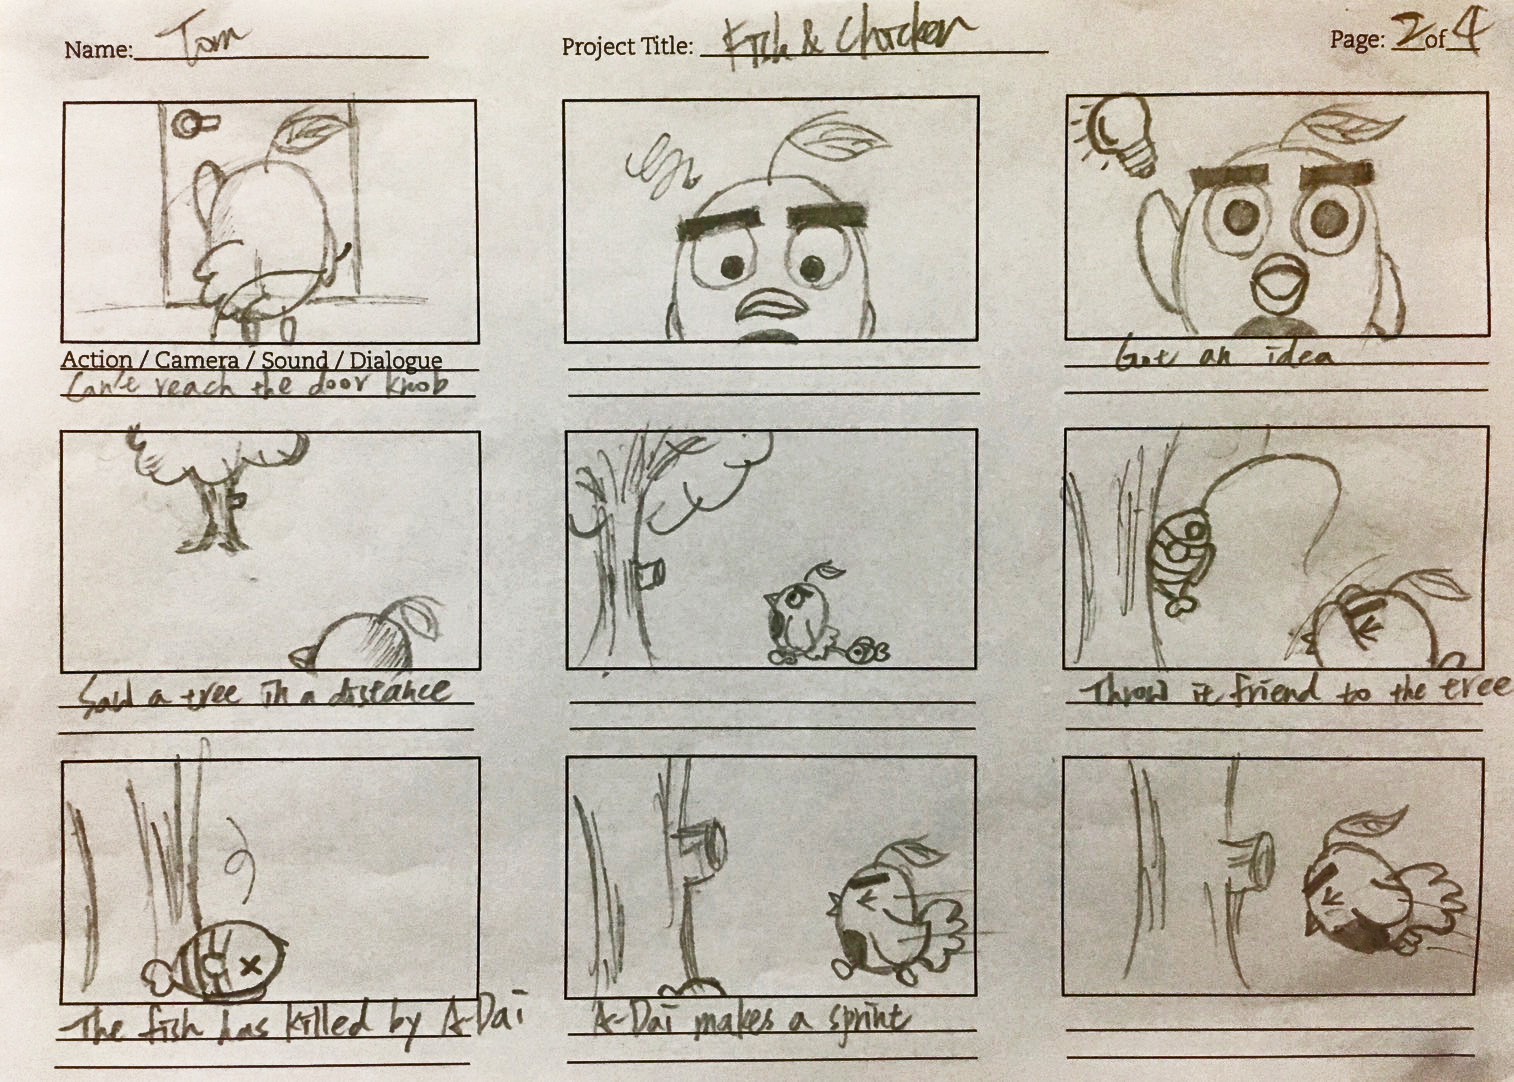 Name: Tom
Project Title: Fish & Chicken
Page: 2 of 4
Action / Camera / Sound / Dialogue
Can't reach the door knob
Got an idea
Saw a tree in a distance
Throw it friend to the tree
The fish has killed by A-Dai
A-Dai makes a sprint